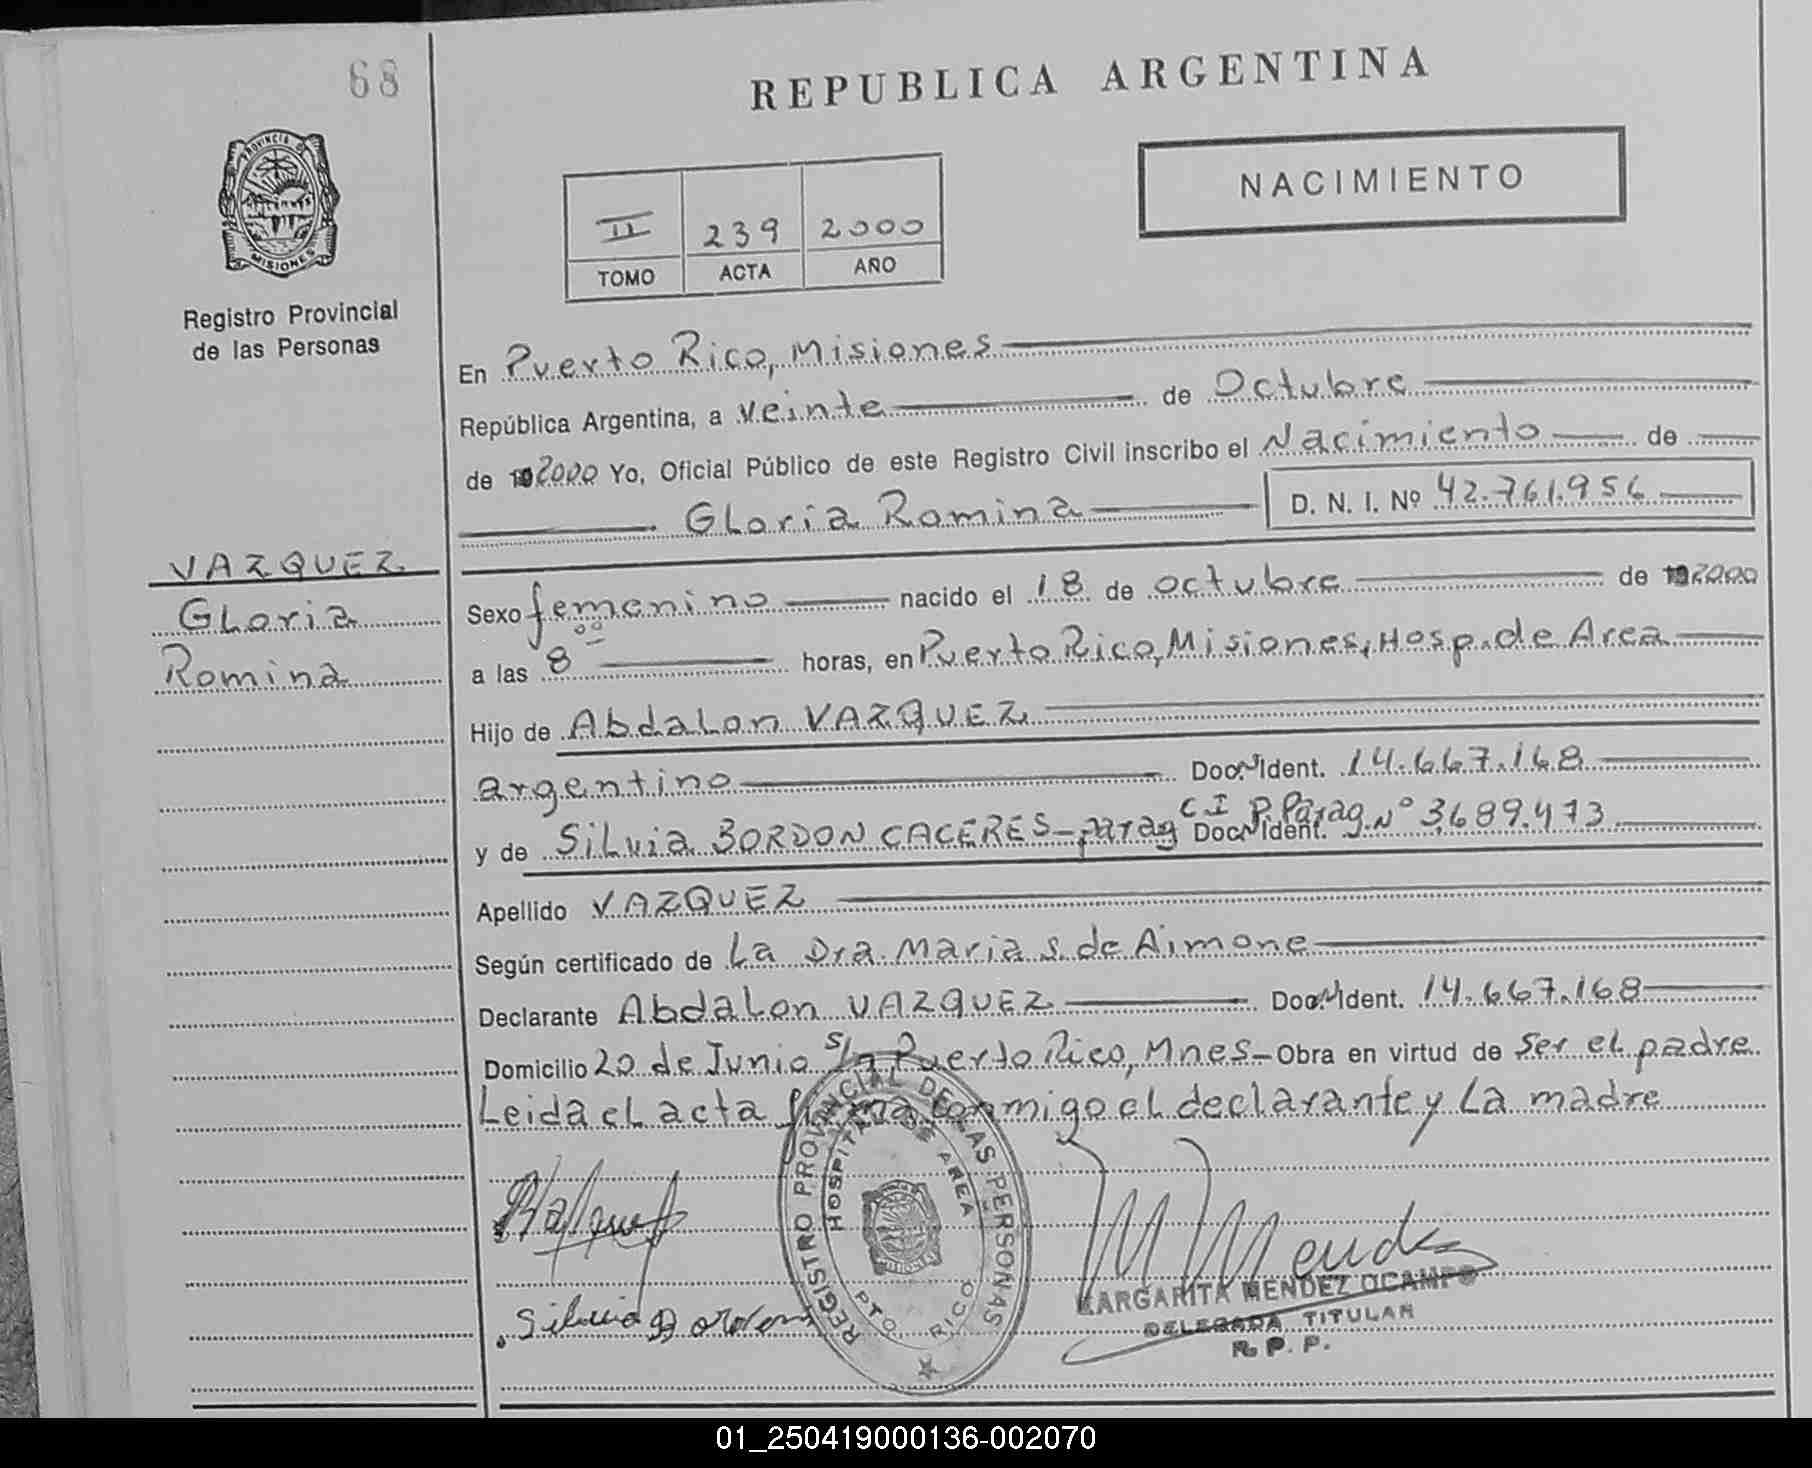 68
REPUBLICA ARGENTINA
PROVINCIA DE
MISIONES
Registro Provincial
de las Personas
NACIMIENTO
II 239 2000
TOMO ACTA AÑO
En Puerto Rico, Misiones
República Argentina, a veinte de Octubre
de 19 2000 Yo, Oficial Público de este Registro Civil inscribo el Nacimiento de
Gloria Romina D. N. I. Nº 42.761.956
VAZQUEZ
Gloria
Romina
Sexo femenino nacido el 18 de octubre de 19 2000
a las 8 00 horas, en Puerto Rico, Misiones, Hosp. de Area
Hijo de Abdalon VAZQUEZ
argentino Doc. Ident. 14.667.168
y de Silvia BORDON CACERES - parag Doc. Ident. C I P. Parag. Nº 3689.473
Apellido VAZQUEZ
Según certificado de La Dra. Maria S. de Aimone
Declarante Abdalon VAZQUEZ Doc. Ident. 14.667.168
Domicilio 20 de Junio s/n Puerto Rico, Mnes - Obra en virtud de Ser el padre
Leida el acta firma conmigo el declarante y la madre
REGISTRO PROVINCIAL DE LAS PERSONAS
HOSPITAL DE AREA
MISIONES
PTO. RICO
MARGARITA MENDEZ OCAMPO
DELEGADA TITULAR
R. P. P.
Silvia Bordon
01_250419000136-002070